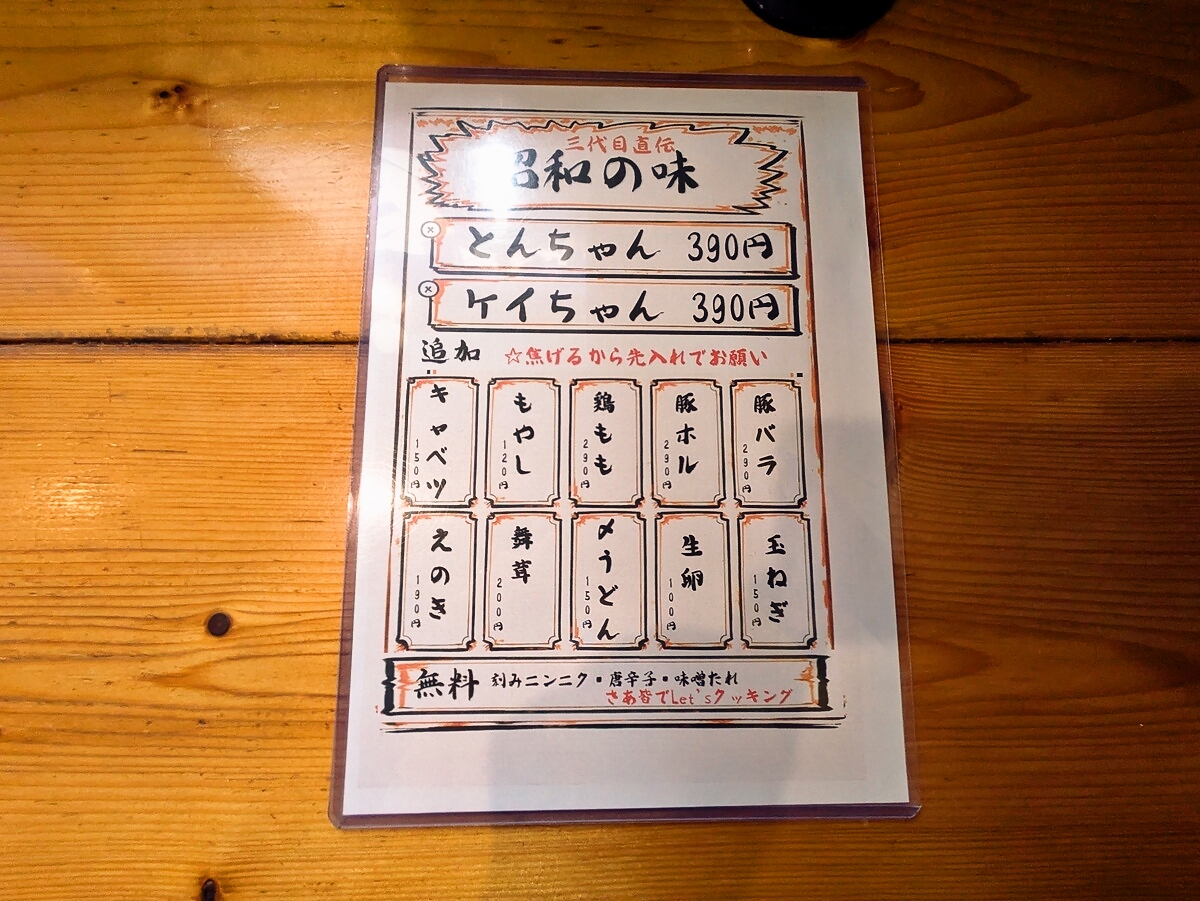 三代目直伝
昭和の味
とんちゃん 390円
ケイちゃん 390円
追加 ☆焦げるから先入れでお願い
豚バラ 290円
豚ホル 290円
鶏もも 290円
もやし 120円
キャベツ 150円
玉ねぎ 150円
生卵 100円
〆うどん 150円
舞茸 200円
えのき 190円
無料 刻みニンニク・唐辛子・味噌たれ
さあ皆でLet'sクッキング